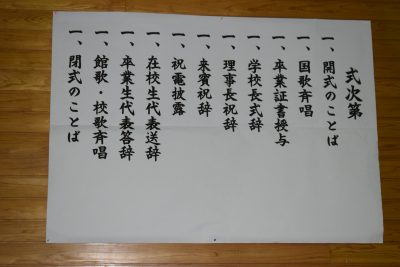 式次第
一、開式のことば
一、国歌斉唱
一、卒業証書授与
一、学校長式辞
一、理事長祝辞
一、来賓祝辞
一、祝電披露
一、在校生代表送辞
一、卒業生代表答辞
一、館歌・校歌斉唱
一、閉式のことば